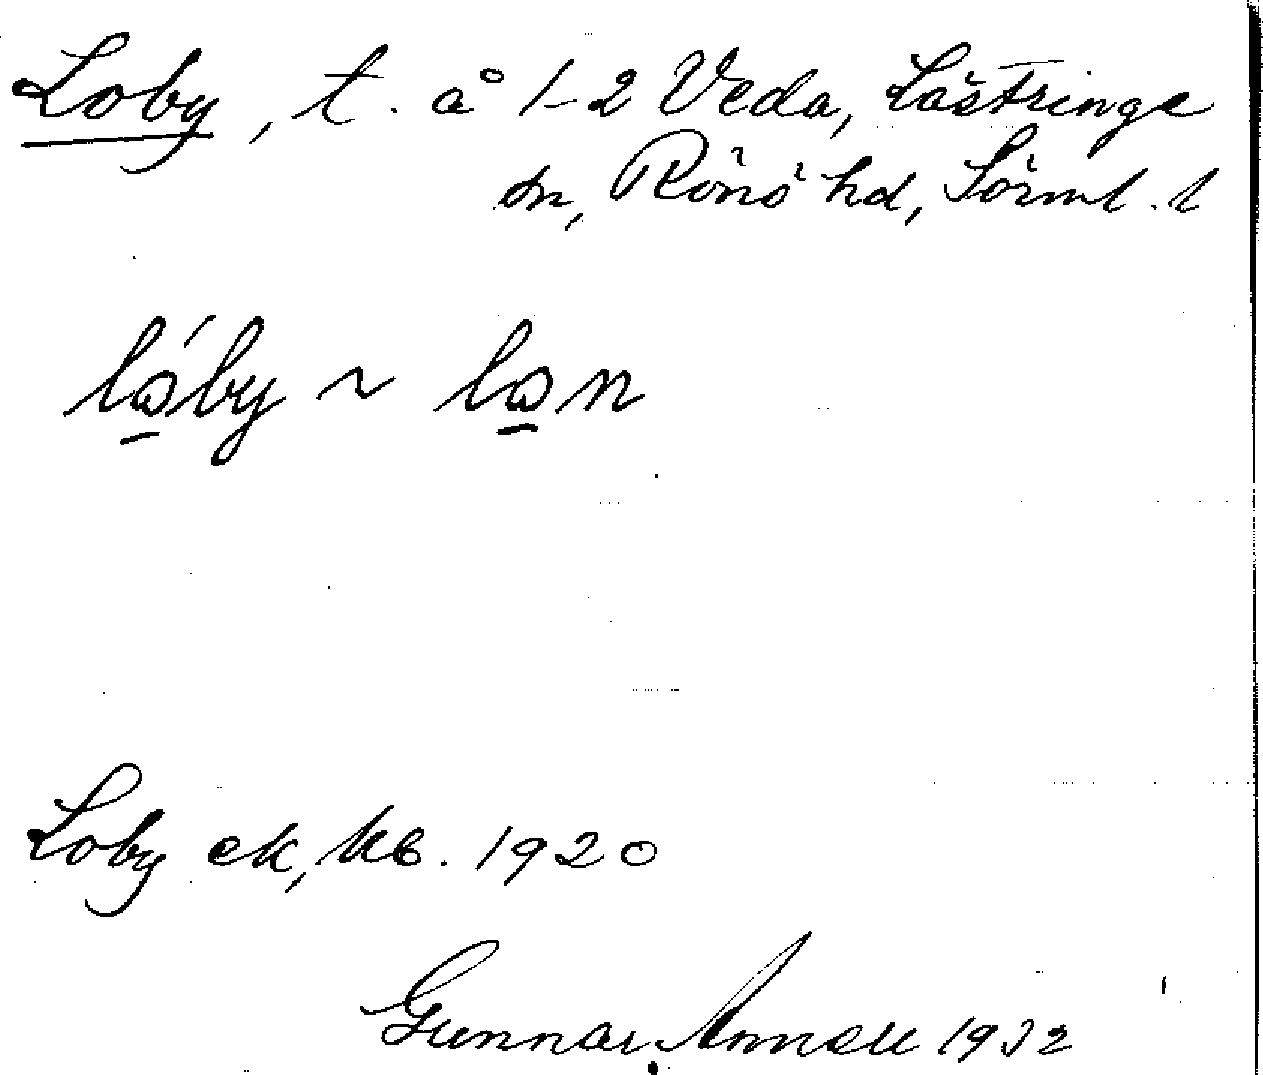 Loby, t. å 1-2 Veda, Lästringe
sn, Rönö hd, Sörml. l
lóby ~ lon
Loby ek, kb. 1920
Gunnar 1932